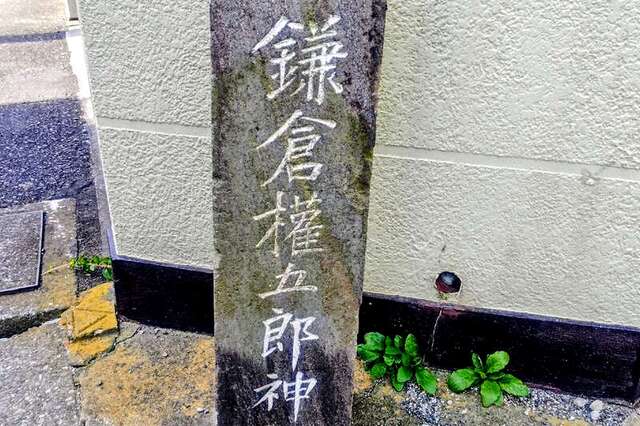 鎌倉權五郎神